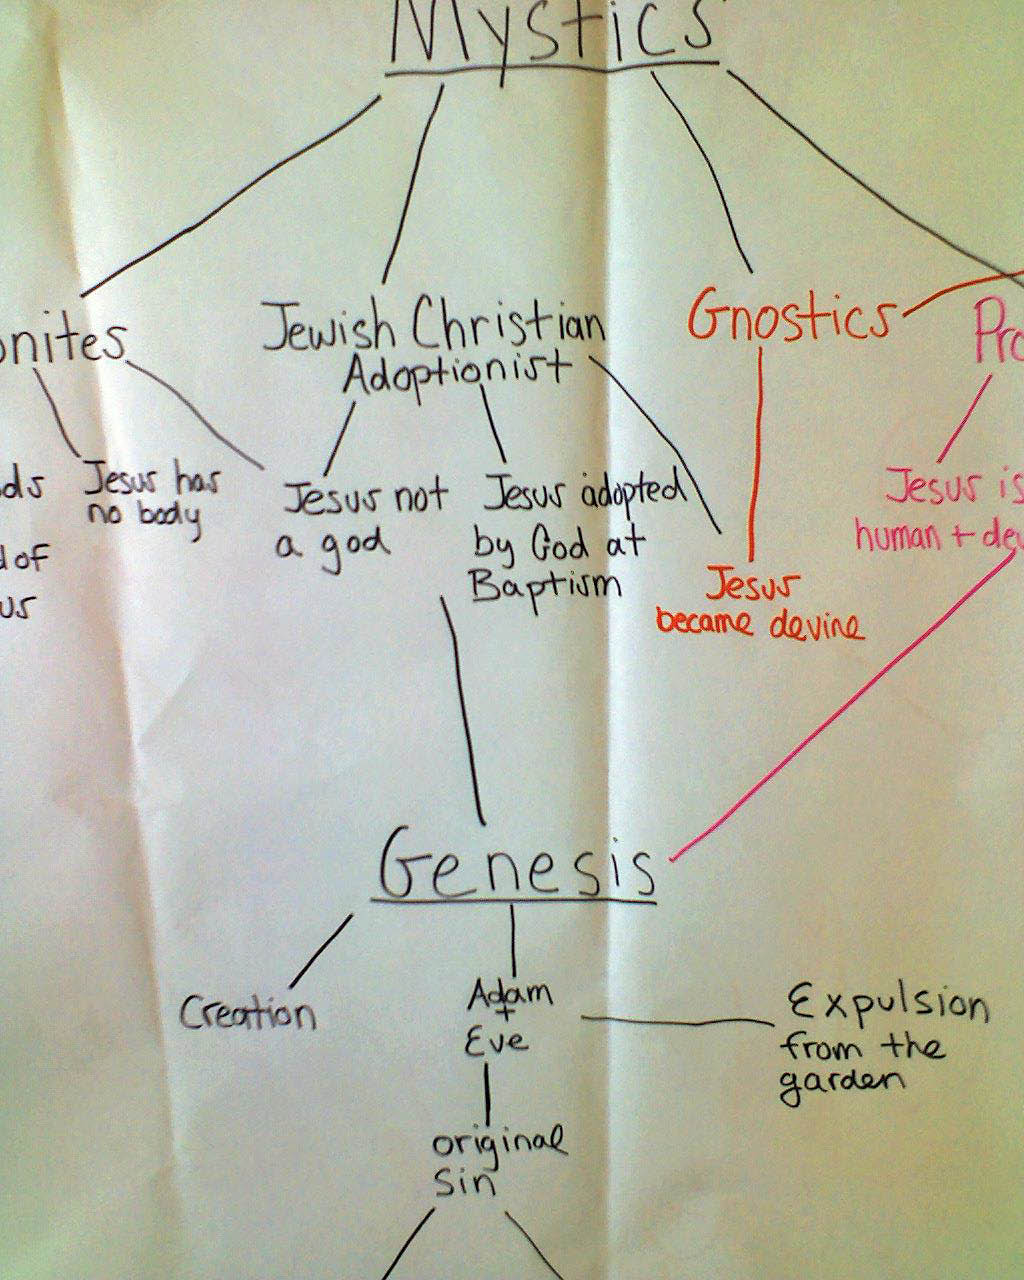 Mystics
onites
Jewish Christian
Adoptionist
Gnostics
Pro
ds
Jesus has
no body
d of
us
Jesus not
a god
Jesus adopted
by God at
Baptism
Jesus
became devine
Jesus is
human + dev
Genesis
Creation
Adam
+
Eve
Expulsion
from the
garden
original
Sin